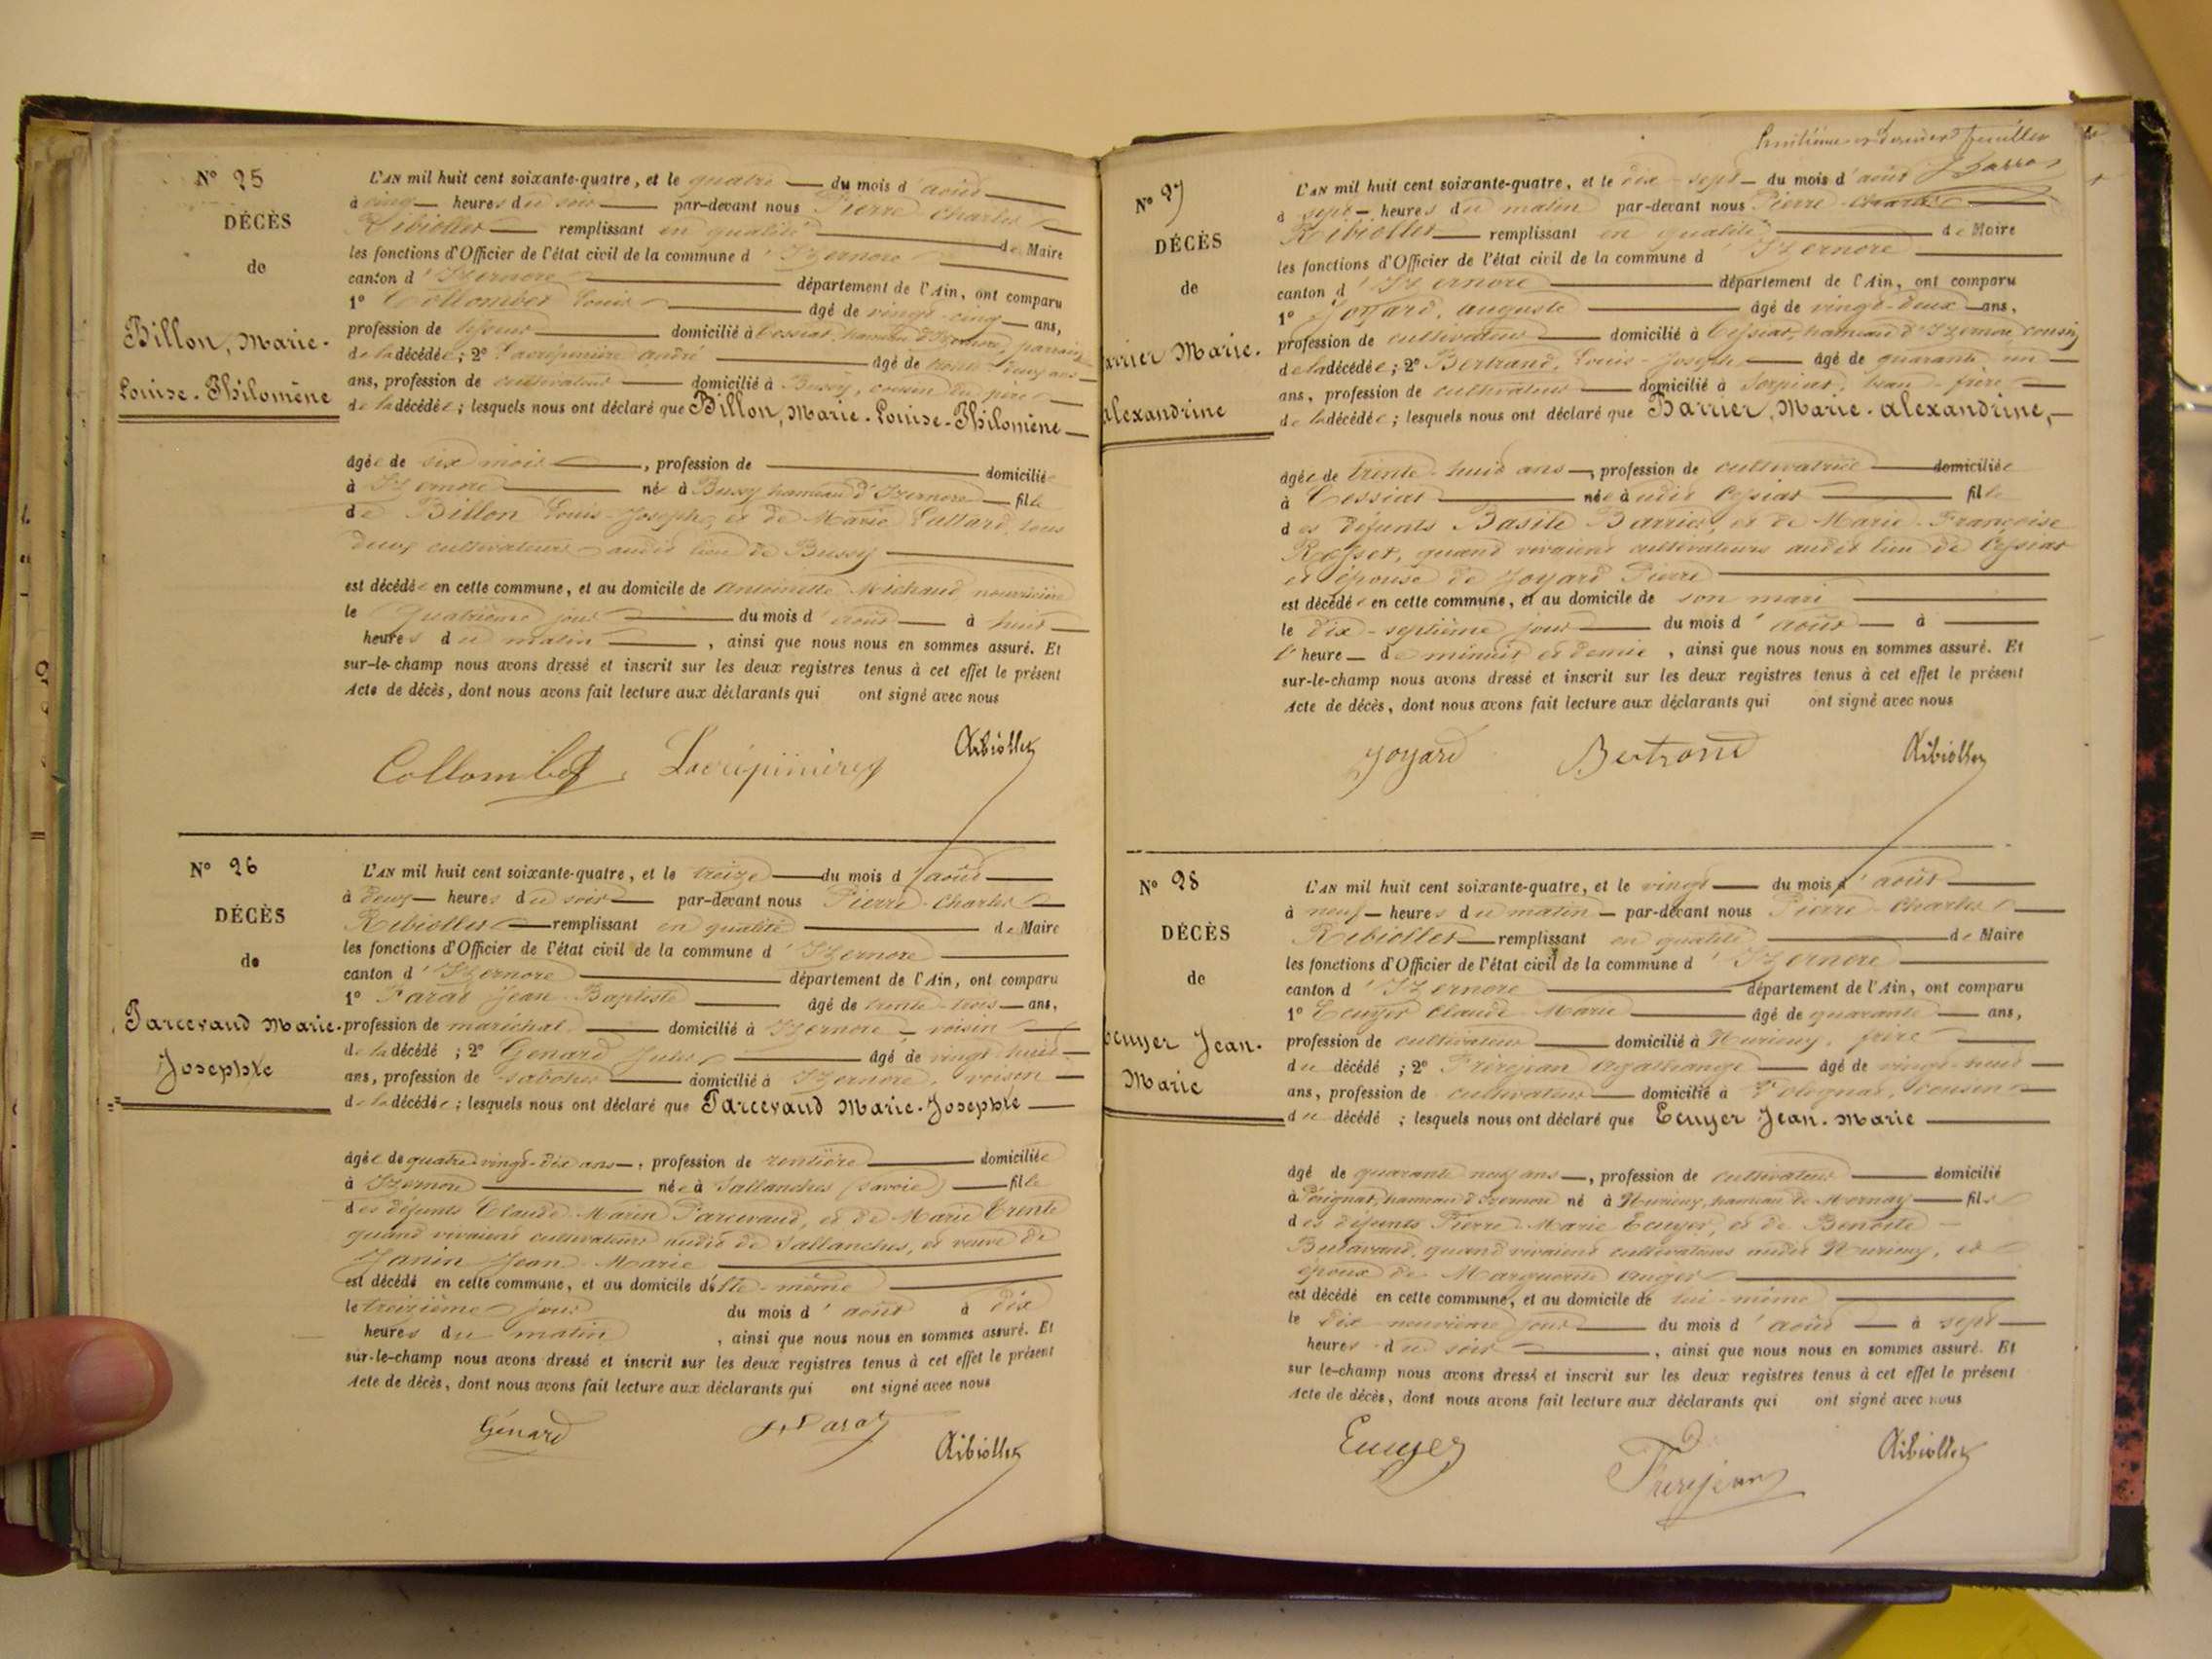 N° 25
DÉCÈS
de
Billon, Marie-
Louise-Philomène
L'AN mil huit cent soixante-quatre, et le quatre du mois d'août
à cinq heures du soir par-devant nous Pierre Charles
Ribiollet remplissant en qualité de Maire
les fonctions d'Officier de l'état civil de la commune d'Izernore
canton d'Izernore département de l'Ain, ont comparu
1° Collombet Louis âgé de vingt-cinq ans,
profession de domicilié à Cessiat, hameau d'Izernore, parrain
de la décédée; 2° Lacrépinière André âgé de trente-deux ans
ans, profession de cultivateur domicilié à Bussy, cousin du père
de la décédée; lesquels nous ont déclaré que Billon, Marie-Louise-Philomène
âgée de six mois, profession de domicilié
à Izernore née à Bussy hameau d'Izernore fille
de Billon Louis-Joseph, et de Marie tous
deux cultivateurs audit lieu de Bussy
est décédée en cette commune, et au domicile de Antoinette Michaud nourricière
le quatrième jour du mois d'août à huit
heures du matin, ainsi que nous nous en sommes assuré. Et
sur-le-champ nous avons dressé et inscrit sur les deux registres tenus à cet effet le présent
Acte de décès, dont nous avons fait lecture aux déclarants qui ont signé avec nous
Collombet Lacrépinière Ribiollet
N° 26
DÉCÈS
de
Parcevaud Marie-
Josephte
L'AN mil huit cent soixante-quatre, et le treize du mois d'août
à deux heures du soir par-devant nous Pierre-Charles
Ribiollet remplissant en qualité de Maire
les fonctions d'Officier de l'état civil de la commune d'Izernore
canton d'Izernore département de l'Ain, ont comparu
1° Parat Jean-Baptiste âgé de trente-trois ans,
profession de maréchal domicilié à Izernore voisin
de la décédé; 2° Genard Jules âgé de vingt-huit
ans, profession de sabotier domicilié à Izernore, voisin
de la décédée; lesquels nous ont déclaré que Parcevaud Marie-Josephte
âgée de quatre-vingt-dix ans, profession de rentière domiciliée
à Izernore née à Sallanches (Savoie) fille
des défunts Claude-Marin Parcevaud, et de Marie Trente
quand vivaient cultivateurs audit de Sallanches, et veuve de
Janin Jean-Marie
est décédé en cette commune, et au domicile d'elle-même
le treizième jour du mois d'août à dix
heures du matin, ainsi que nous nous en sommes assuré. Et
sur-le-champ nous avons dressé et inscrit sur les deux registres tenus à cet effet le présent
Acte de décès, dont nous avons fait lecture aux déclarants qui ont signé avec nous
Génard Parat Ribiollet
huitième et dernier feuillet
N° 27
DÉCÈS
de
arrier Marie-
Alexandrine
L'AN mil huit cent soixante-quatre, et le dix-sept du mois d'août
à sept heures du matin par-devant nous Pierre-Charles
Ribiollet remplissant en qualité de Maire
les fonctions d'Officier de l'état civil de la commune d'Izernore
canton d'Izernore département de l'Ain, ont comparu
1° Joyard, Auguste âgé de vingt-deux ans,
profession de cultivateur domicilié à Cessiat, hameau d'Izernore, cousin
de la décédée; 2° Bertrand, Louis-Joseph âgé de quarante un
ans, profession de cultivateur domicilié à Sorpiat, beau-frère
de la décédée; lesquels nous ont déclaré que Barrier, Marie-Alexandrine,
âgée de trente-huit ans, profession de cultivatrice domiciliée
à Cessiat née à udit Cessiat fille
des défunts Basile Barrier, et de Marie-Françoise
Rosset, quand vivaient cultivateurs audit lieu de Cessiat
et épouse de Joyard Pierre
est décédée en cette commune, et au domicile de son mari
le dix-septième jour du mois d'août à
l'heure de minuit et demie, ainsi que nous nous en sommes assuré. Et
sur-le-champ nous avons dressé et inscrit sur les deux registres tenus à cet effet le présent
Acte de décès, dont nous avons fait lecture aux déclarants qui ont signé avec nous
Joyard Bertrand Ribiollet
N° 28
DÉCÈS
de
Ecuyer Jean-
Marie
L'AN mil huit cent soixante-quatre, et le vingt du mois d'août
à neuf heures du matin par-devant nous Pierre-Charles
Ribiollet remplissant en qualité de Maire
les fonctions d'Officier de l'état civil de la commune d'Izernore
canton d'Izernore département de l'Ain, ont comparu
1° Ecuyer Claude-Marie âgé de quarante ans,
profession de cultivateur domicilié à Nurieux, frère
du décédé; 2° Frèrejean Agathange âgé de vingt-neuf
ans, profession de cultivateur domicilié à Volognat, cousin
du décédé; lesquels nous ont déclaré que Ecuyer Jean-Marie
âgé de quarante neuf ans, profession de cultivateur domicilié
à Pérignat, hameau d'Izernore né à Nurieux, hameau de Mornay fils
des défunts Pierre-Marie Ecuyer, et de Benoîte
Butavand, quand vivaient cultivateurs audit Nurieux, et
époux de Marguerite Auger
est décédé en cette commune, et au domicile de lui-même
le dix-neuvième jour du mois d'août à sept
heures du soir, ainsi que nous nous en sommes assuré. Et
sur le-champ nous avons dressé et inscrit sur les deux registres tenus à cet effet le présent
Acte de décès, dont nous avons fait lecture aux déclarants qui ont signé avec nous
Ecuyer Frerejean Ribiollet